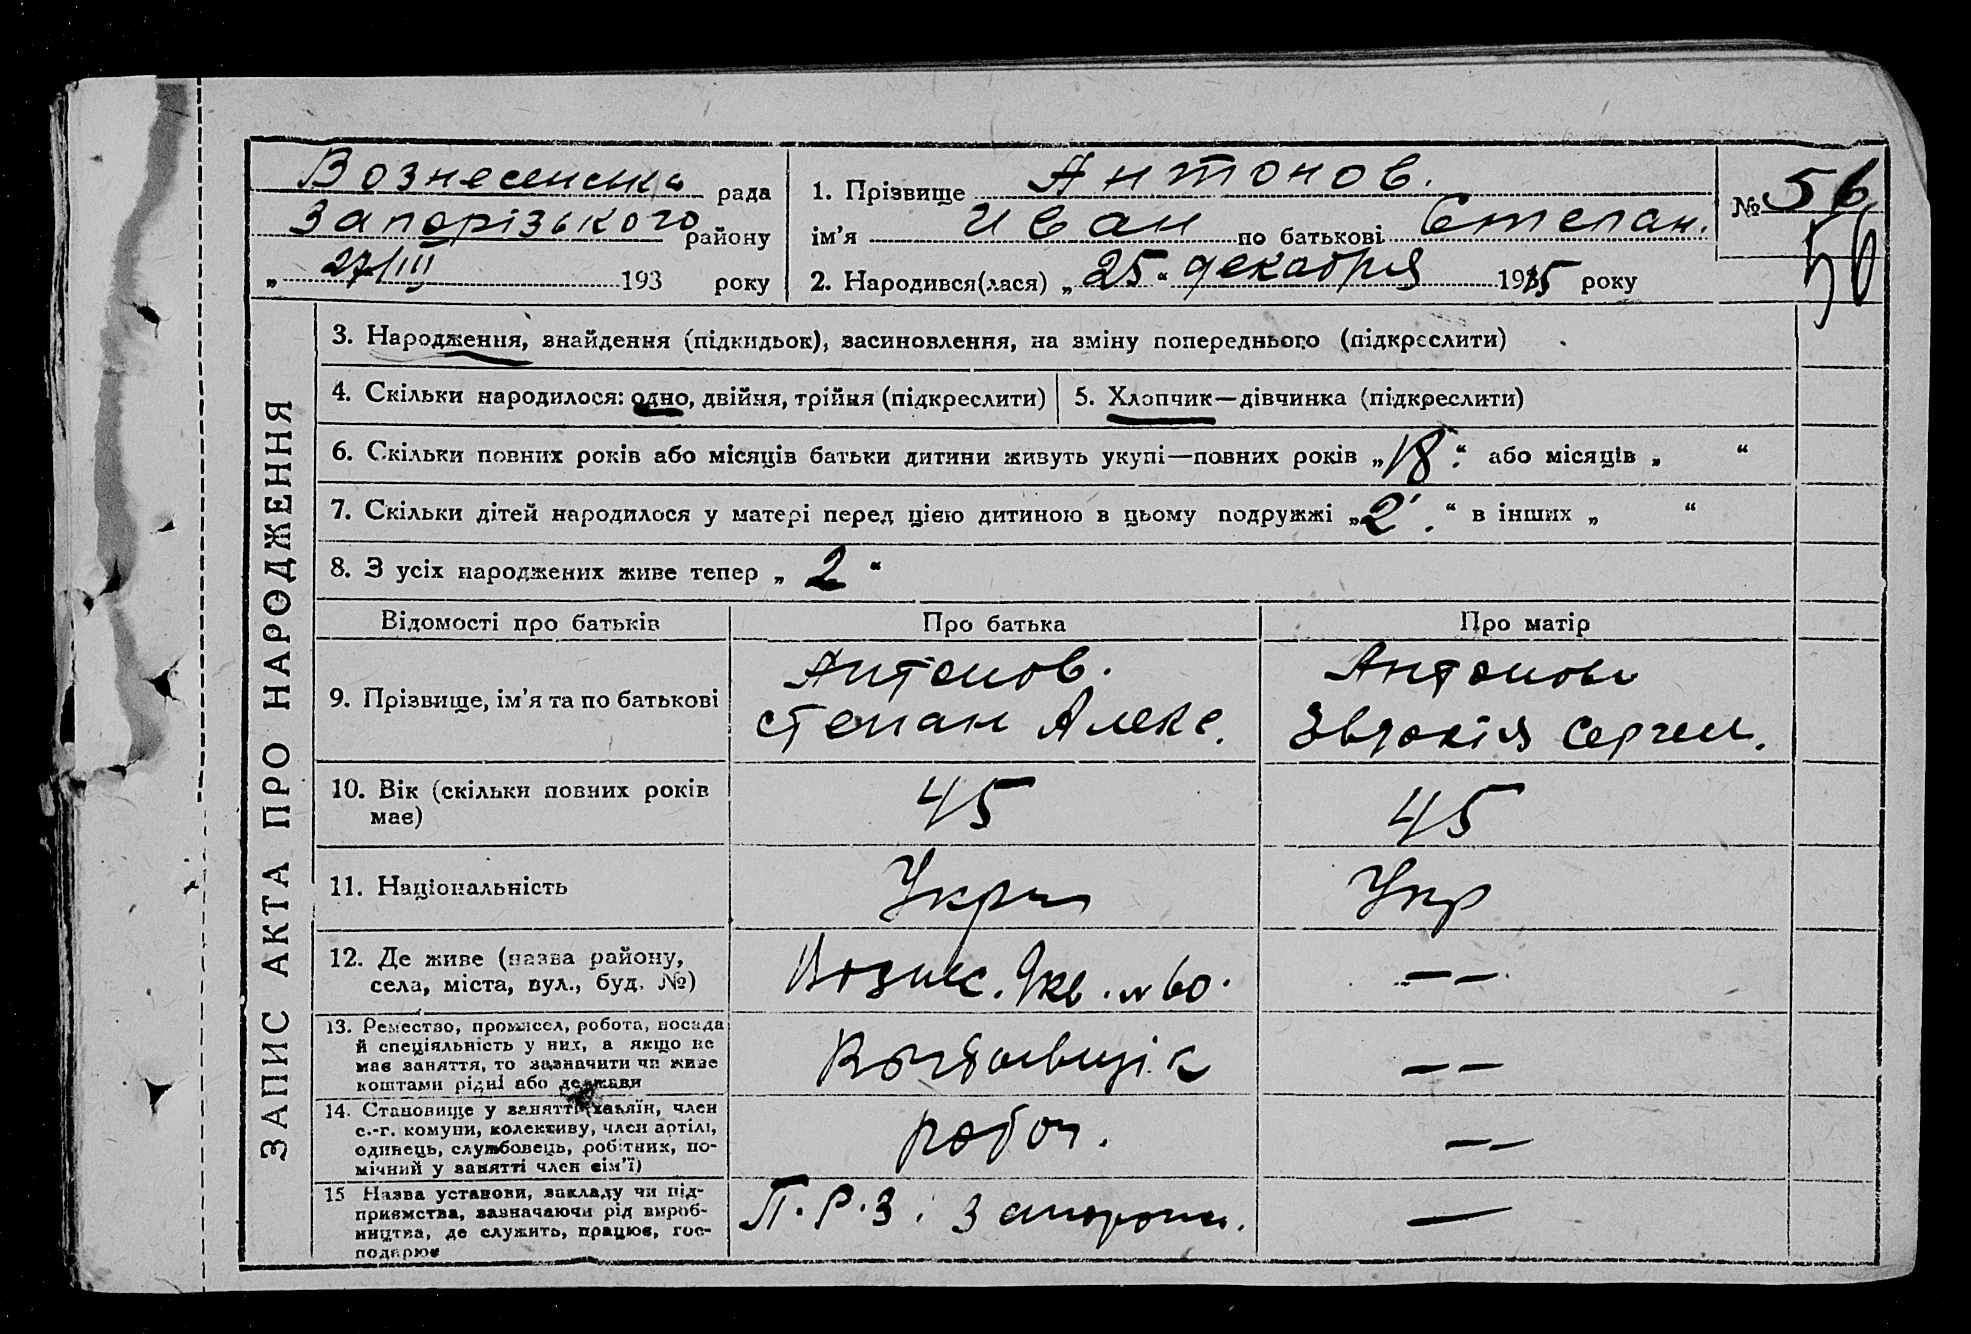 Вознесенська рада
Запорізького району
„ 27/III 193 року
1. Прізвище Антонов.
ім’я Иван по батькові Степан.
2. Народився(лася) „ 25 “ декабря 1935 року
№ 56
56
ЗАПИС АКТА ПРО НАРОДЖЕННЯ
3. Народження, знайдення (підкидьок), засиновлення, на зміну попереднього (підкреслити)
4. Скільки народилося: одно, двійня, трійня (підкреслити)
5. Хлопчик—дівчинка (підкреслити)
6. Скільки повних років або місяців батьки дитини живуть укупі—повних років „18“ або місяців „ “
7. Скільки дітей народилося у матері перед цією дитиною в цьому подружжі „2“ в інших „ “
8. З усіх народжених живе тепер „ 2 “
Відомості про батьків
Про батька
Про матір
9. Прізвище, ім’я та по батькові
Антонов.
Степан Алекс.
Антонова
Эвдокія Сергеев.
10. Вік (скільки повних років
має)
45
45
11. Національність
Укра
Укр
12. Де живе (назва району,
села, міста, вул., буд. №)
Вознес. 9 кв. № 60.
— —
13. Ремество, промисел, робота, посада
й спеціяльність у них, а якщо не
має заняття, то зазначити чи живе
коштами рідні або держави
— —
14. Становище у занятті (хазяїн, член
с.-г. комуни, колективу, член артілі,
одинець, службовець, робітник, по-
мічний у занятті член сім’ї)
рабоч.
— —
15 Назва установи, закладу чи під-
приємства, зазначаючи рід вироб-
ництва, де служить, працює, гос-
подарює
П. Р. З.
—